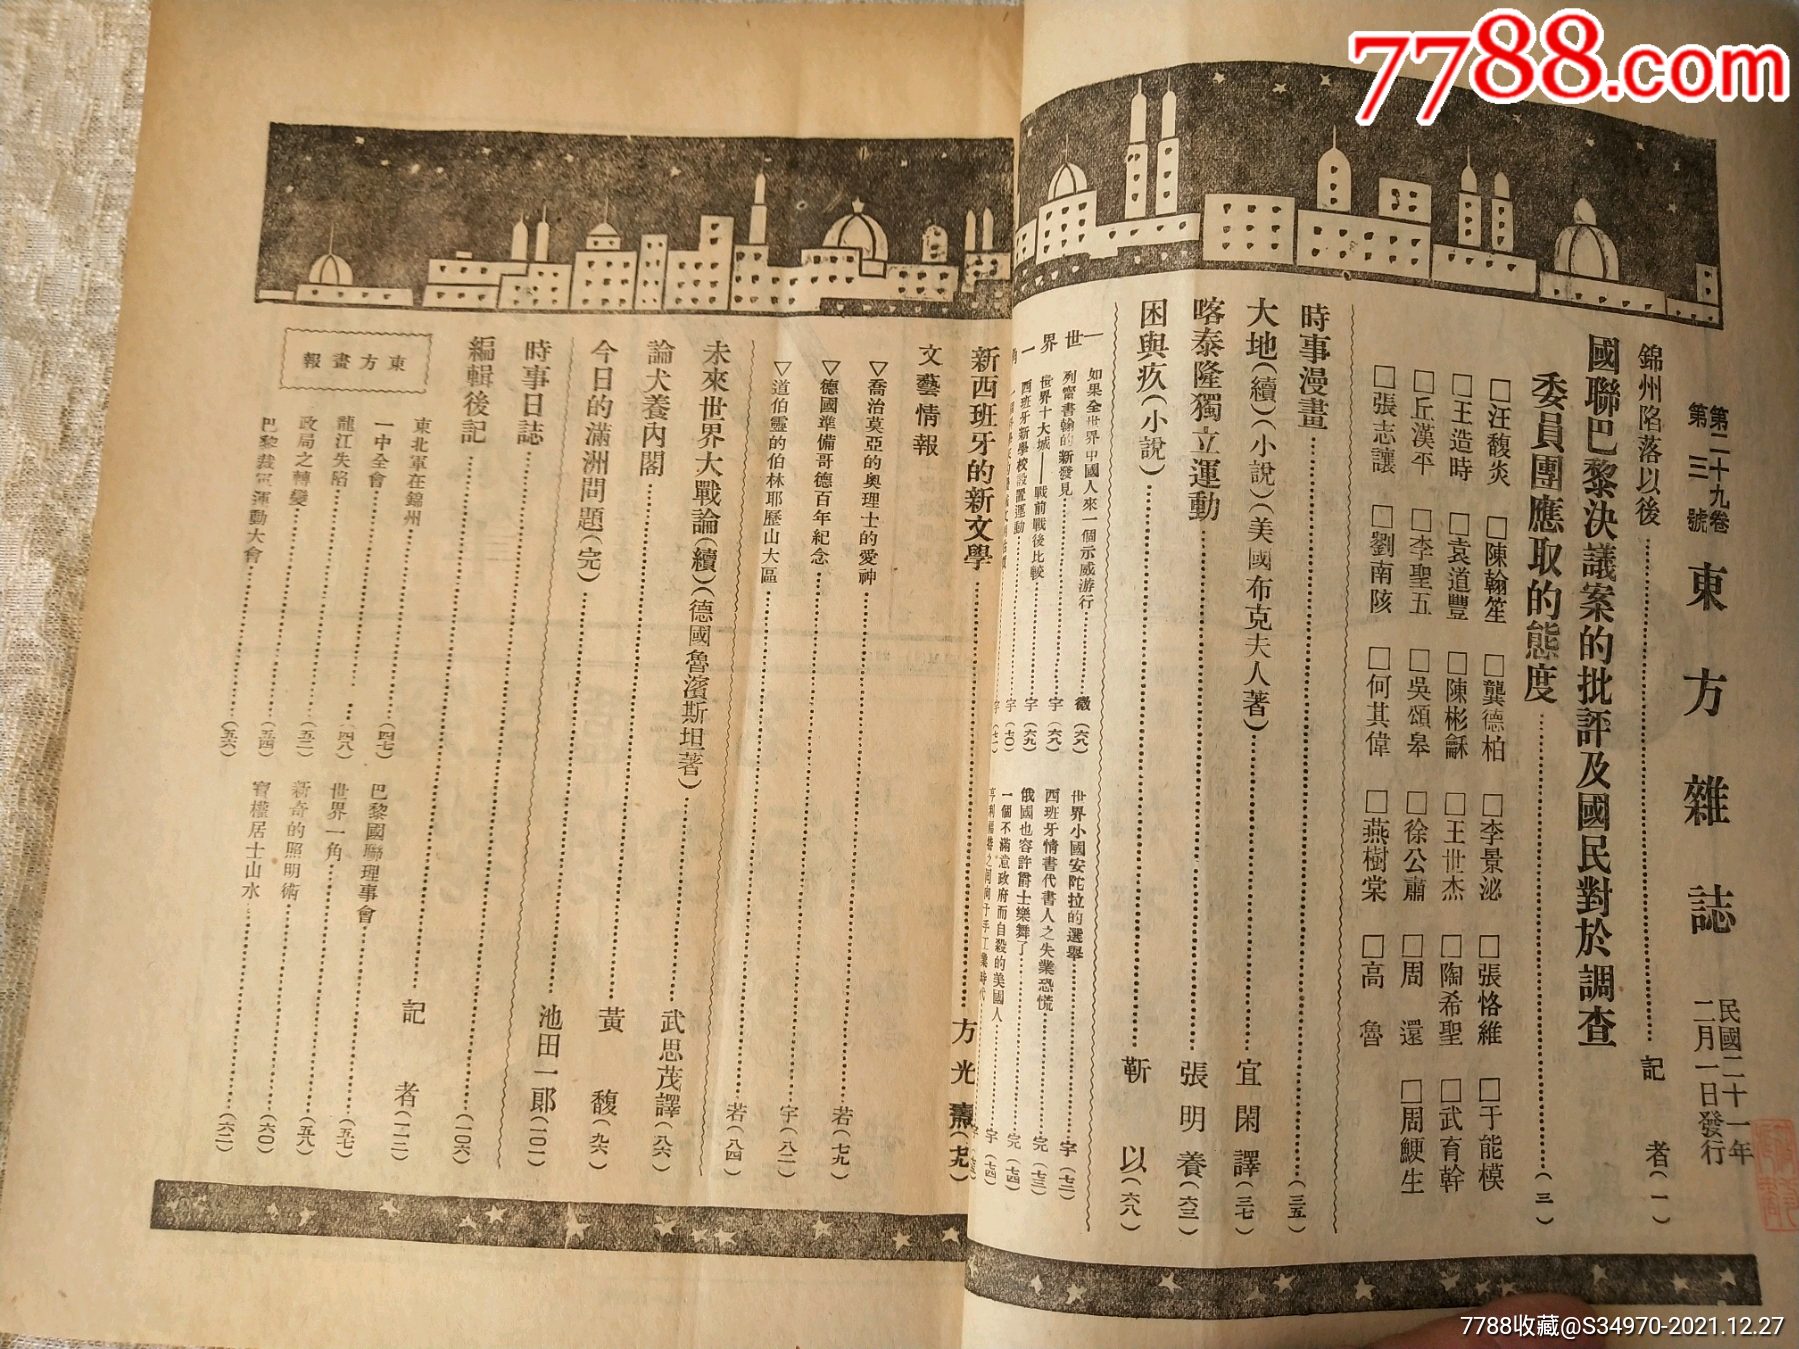 7788.com
第二十九卷
第三號
東方雜誌
民國二十一年
二月一日發行
錦州陷落以後 記者(一)
國聯巴黎決議案的批評及國民對於調查
委員團應取的態度 (三)
□汪馥炎 □陳翰笙 □龔德柏 □李景泌 □張恪維 □于能模
□王造時 □袁道豐 □陳彬龢 □王世杰 □陶希聖 □武育幹
□丘漢平 □李聖五 □吳頌皋 □徐公肅 □周還 □周鯁生
□張志讓 □劉南陔 □何其偉 □燕樹棠 □高魯
時事漫畫 (三五)
大地(續)(小說)(美國布克夫人著) 宜閑譯(三七)
喀泰隆獨立運動 張明養(六三)
困與疚(小說) 靳以(六八)
世界一角
如果全世界中國人來一個示威游行 徵(六八)
列甯書翰的新發見 宇(六八)
世界十大城——戰前戰後比較 宇(六九)
西班牙新學校設置運動 宇(七〇)
世界小國安陀拉的選舉 宇(七二)
西班牙情書代書人之失業恐慌 完(七三)
俄國也容許爵士樂舞了 完(七四)
一個不滿意政府而自殺的美國人 宇(七四)
新西班牙的新文學 方光燾
文藝情報
▽喬治莫亞的奧理士的愛神 若(七九)
▽德國準備哥德百年紀念 宇(八二)
▽道伯靈的伯林耶歷山大區 若(八四)
未來世界大戰論(續)(德國魯濱斯坦著) 武思茂譯(八六)
論犬養內閣 黃馥(九六)
今日的滿洲問題(完) 池田一郎(一〇一)
時事日誌 (一〇六)
編輯後記 記者(一一二)
東方畫報
東北軍在錦州 (四七)
一中全會 (四八)
龍江失陷 (五二)
政局之轉變 (五四)
巴黎裁軍運動大會 (五六)
巴黎國聯理事會 (五七)
世界一角 (五八)
新奇的照明術 (六〇)
賓權居士山水 (六二)
7788收藏@S34970-2021.12.27